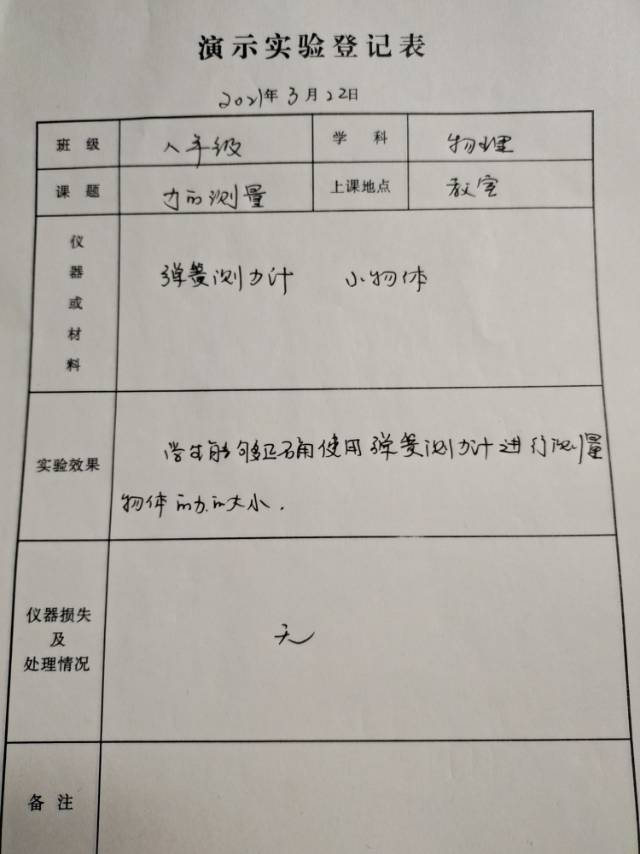 演示实验登记表
2021年3月22日
班级 八年级 学科 物理
课题 力的测量 上课地点 教室
仪器或材料 弹簧测力计 小物体
实验效果 学生能够正确使用弹簧测力计进行测量
物体的力的大小.
仪器损失
及
处理情况 无
备注